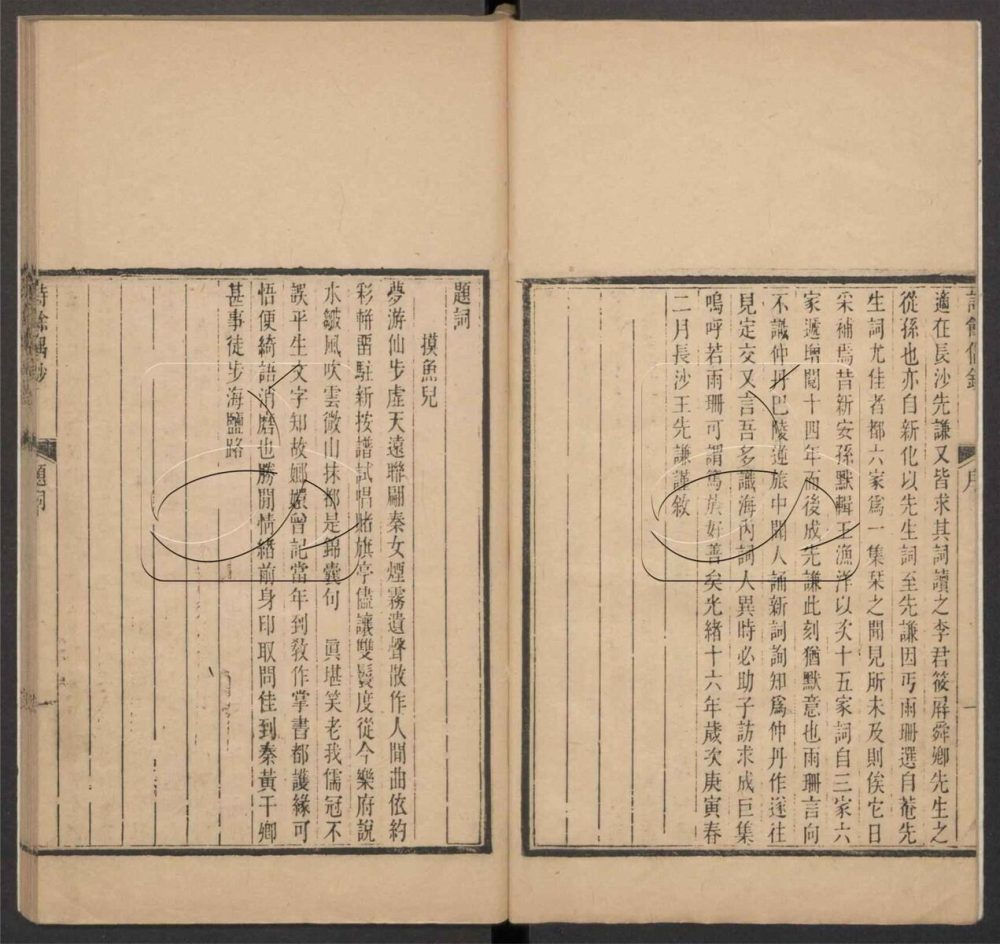 適在長沙先謙又皆求其詞讀之李君筱屏舜鄉先生之
從孫也亦自新化以先生詞至先謙因丐雨珊選自菴先
生詞尤佳者都六家爲一集栞之聞見所未及則俟它日
采補焉昔新安孫默輯王漁洋以次十五家詞自三家六
家遞增閱十四年而後成先謙此刻猶默意也雨珊言向
不識仲丹巴陵逆旅中聞人誦新詞詢知爲仲丹作遂往
見定交又言吾多識海內詞人異時必助子訪求成巨集
嗚呼若雨珊可謂篤於好善矣光緒十六年歲次庚寅春
二月長沙王先謙謹敘
序
一
題詞
摸魚兒
夢游仙步虛天遠聯翩秦女煙霧遺聲散作人間曲依約
彩輧霤駐新按譜試唱賭旗亭儘讓雙鬟度從今樂府說
水皺風吹雲微山抹都是錦囊句　眞堪笑老我儒冠不
誤平生文字知故嫏嬛曾記當年到敎作掌書都護緣可
悟便綺語消磨也勝閒情緖前身印取問佳到秦黃干卿
甚事徒步海鹽路
詩餘偶鈔
題詞